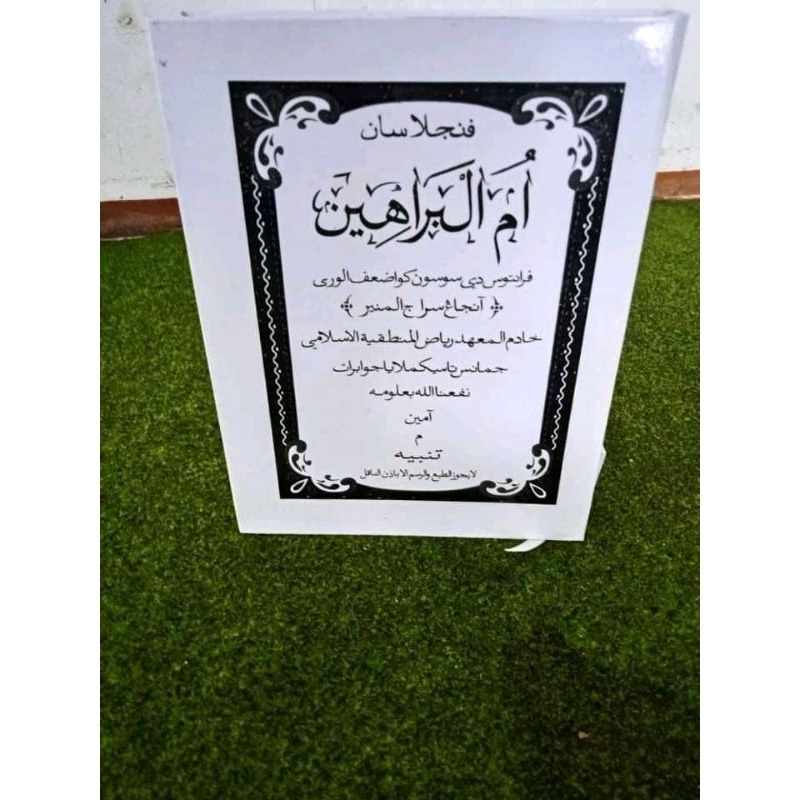 فنجلاسان
أُم الْبَرَاهِين
فرانتوس دي سوسون كو اضعف الورى
﴿ آنجاغ سراج المنير ﴾
خادم المعهد رياض المنطقية الاسلامي
جمانس تاسيكملايا جوابرات
نفعنا الله بعلومه
آمين
م
تنبيه
لا يجوز الطبع والرسم الا باذن الناقل